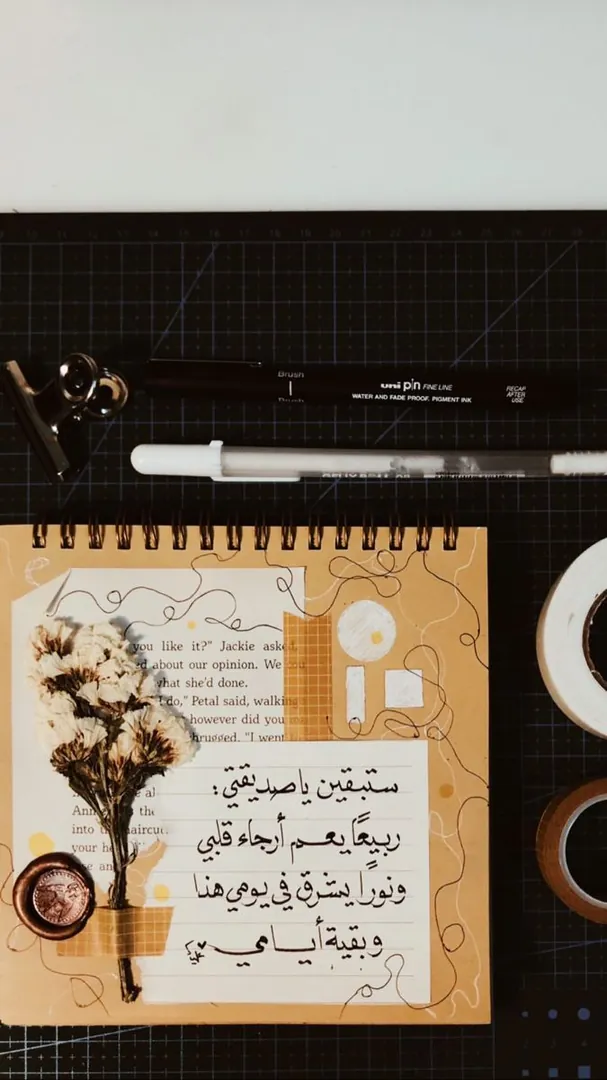 Brush
uni pin FINE LINE
WATER AND FADE PROOF. PIGMENT INK
RECAP
AFTER
USE
you like it?" Jackie asked
ed about our opinion. We
what she'd done.
do," Petal said, walking
however did you
hrugged. "I went
ستبقين يا صديقتي:
ربيعًا يعم أرجاء قلبي
ونورًا يشرق في يومي هذا
وبقية أيامي
the
into haircut
your